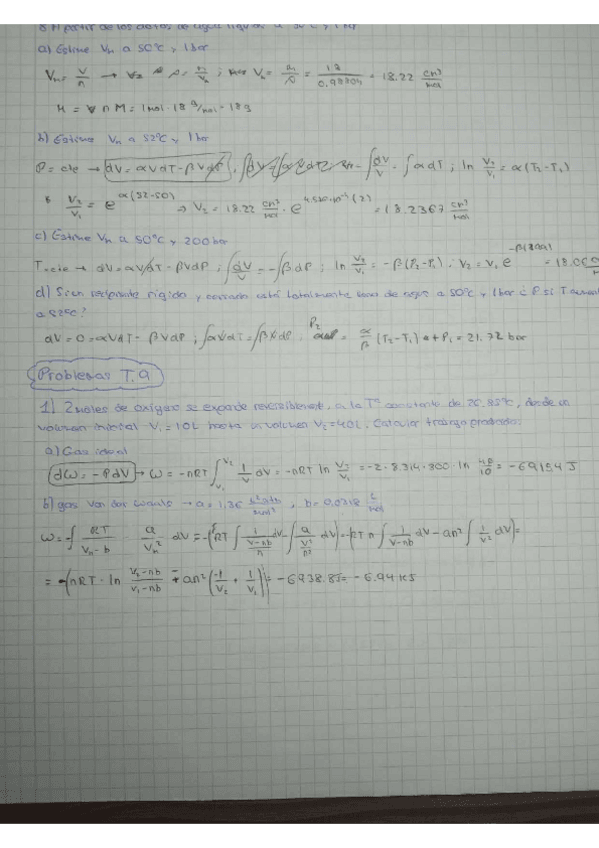 a) Estime Vm a 50°C y 1 bar
Vm = V/n → ; Vm = M/ρ = 18/0.98804 = 18.22 cm³/mol
M = n M = 1 mol · 18 g/mol = 18g
b) Estime Vm a 52°C y 1 bar
P = cte → dV = αVdT - βVdP, ∫dV/V = ∫αdT ; ln V₂/V₁ = α(T₂-T₁)
V₂/V₁ = e^α(52-50) ⇒ V₂ = 18.22 cm³/mol · e = 18.2367 cm³/mol
c) Estime Vm a 50°C y 200 bar
T=cte → dV = αVdT - βVdP ; ∫dV/V = -∫βdP ; ln V₂/V₁ = -β(P₂-P₁) ; V₂ = V₁ e
d) Si un recipiente rígido y cerrado está totalmente lleno de agua a 50°C y 1 bar ¿P si T
a 52°C?
dV = 0 = αVdT - βVdP ; ∫αVdT = ∫βVdP. P₂ = α/β (T₂-T₁) + P₁ = 21.72 bar
Problemas T.9
1) 2 moles de oxígeno se expande a la Tª constante de 26.85°C, desde un
volumen inicial V₁ = 10L hasta un volumen V₂ = 40L. Calcular trabajo producido:
a) Gas ideal
dω = -PdV → ω = -nRT ∫ᵥ₁ᵛ² 1/V dV = -nRT ln V₂/V₁ = -2·8.314·300·ln 40/10 = -6915.4 J
b) gas van der Waals → a = 1.36 L²atm/mol², b = 0.0318 L/mol
ω = -∫ RT/Vm-b a/Vm² dV = -(RT ∫ 1/(V-nb)/n dV - ∫ a/V²/n² dV) = -(RTn ∫ 1/V-nb dV - an² ∫ 1/V² dV) =
= -(nRT · ln V₂-nb/V₁-nb - an² (-1/V₂ + 1/V₁)) = -6938.8J = -6.94 kJ